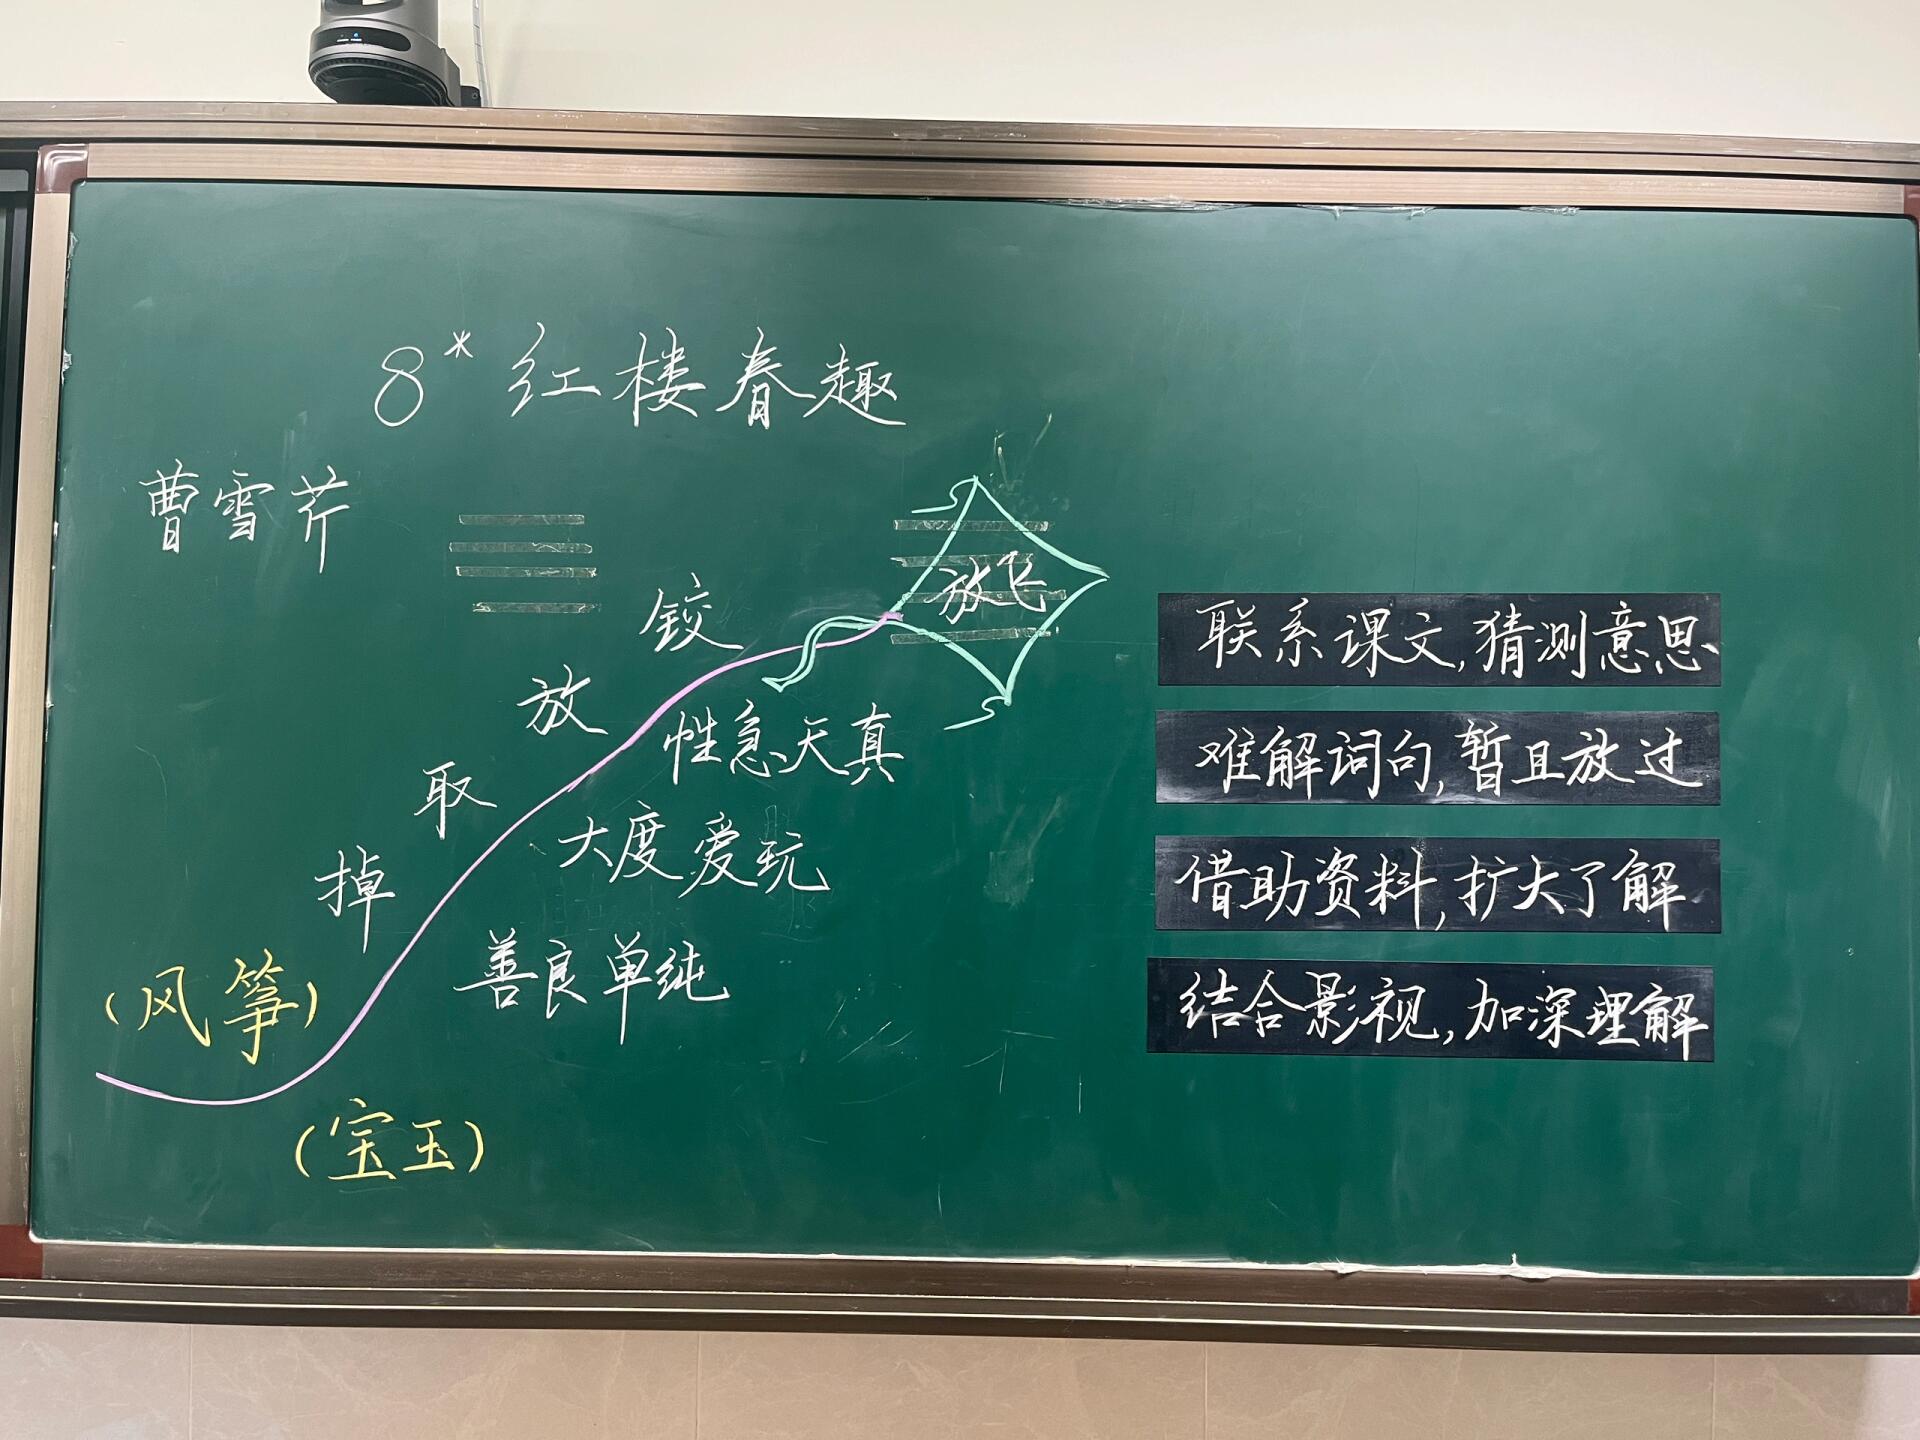 8* 红楼春趣
曹雪芹
放飞
铰
放
取
掉
(风筝)
性急天真
大度爱玩
善良单纯
(宝玉)
联系课文,猜测意思
难解词句,暂且放过
借助资料,扩大了解
结合影视,加深理解